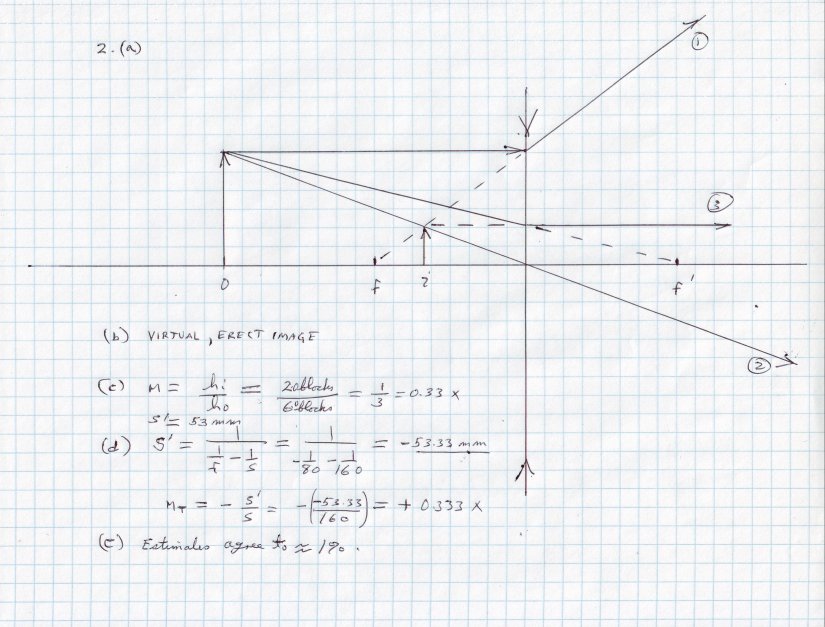 2. (a)
①
③
O
f
i
f'
②
(b) VIRTUAL, ERECT IMAGE
(c) M = hi/ho = 2 blocks/6 blocks = 1/3 = 0.33 x
S' = 53 mm
(d) S' = 1/(1/f - 1/s) = 1/(-1/80 - 1/160) = -53.33 mm
M_T = - s'/s = -(-53.33/160) = + 0.333 x
(e) Estimates agree to ≈ 1%.